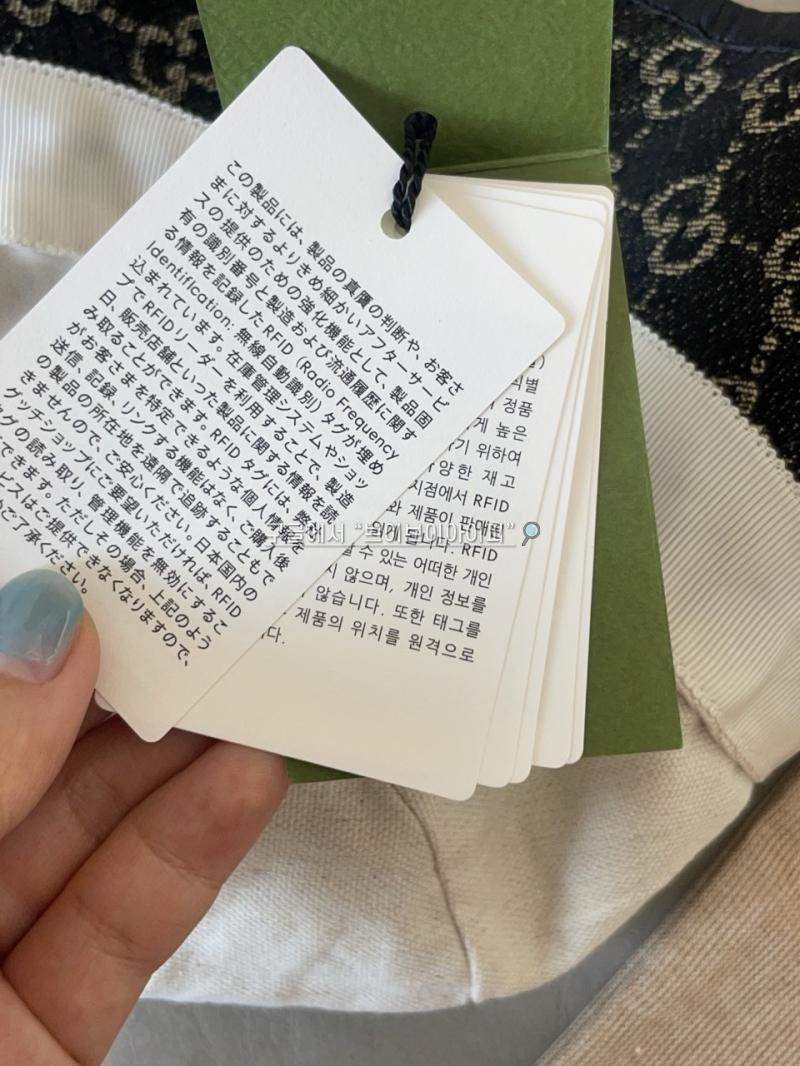 この製品には、製品の真贋の判断や、お客さ
まに対するよりきめ細かいアフターサービ
スの提供のための強化機能として、製品固
有の識別番号と製造および流通履歴に関す
る情報を記録したRFID（Radio Frequency
Identification: 無線自動識別）タグが埋め
込まれています。在庫管理システムやショッ
プでRFIDリーダーを利用することで、製造
日、販売店舗といった製品に関する情報を読
み取ることができます。RFIDタグには、弊社
がお客さまを特定できるような個人情報を
送信、記録、リンクする機能はなく、ご購入後
の製品の所在地を遠隔で追跡することもで
きませんので、ご安心ください。日本国内の
グッチショップにご要望いただければ、RFID
タグの読み取り、管理機能を無効にするこ
できます。ただしその場合、上記のよう
ービスはご提供できなくなりますので、
ご了承ください。
식별
정품
게 높은
기 위하여
양한 재고
지점에서 RFID
와 제품이 판매된
있게 됩니다. RFID
할 수 있는 어떠한 개인
지 않으며, 개인 정보를
않습니다. 또한 태그를
제품의 위치를 원격으로
니다.
구글에서 "브이브이아이피"